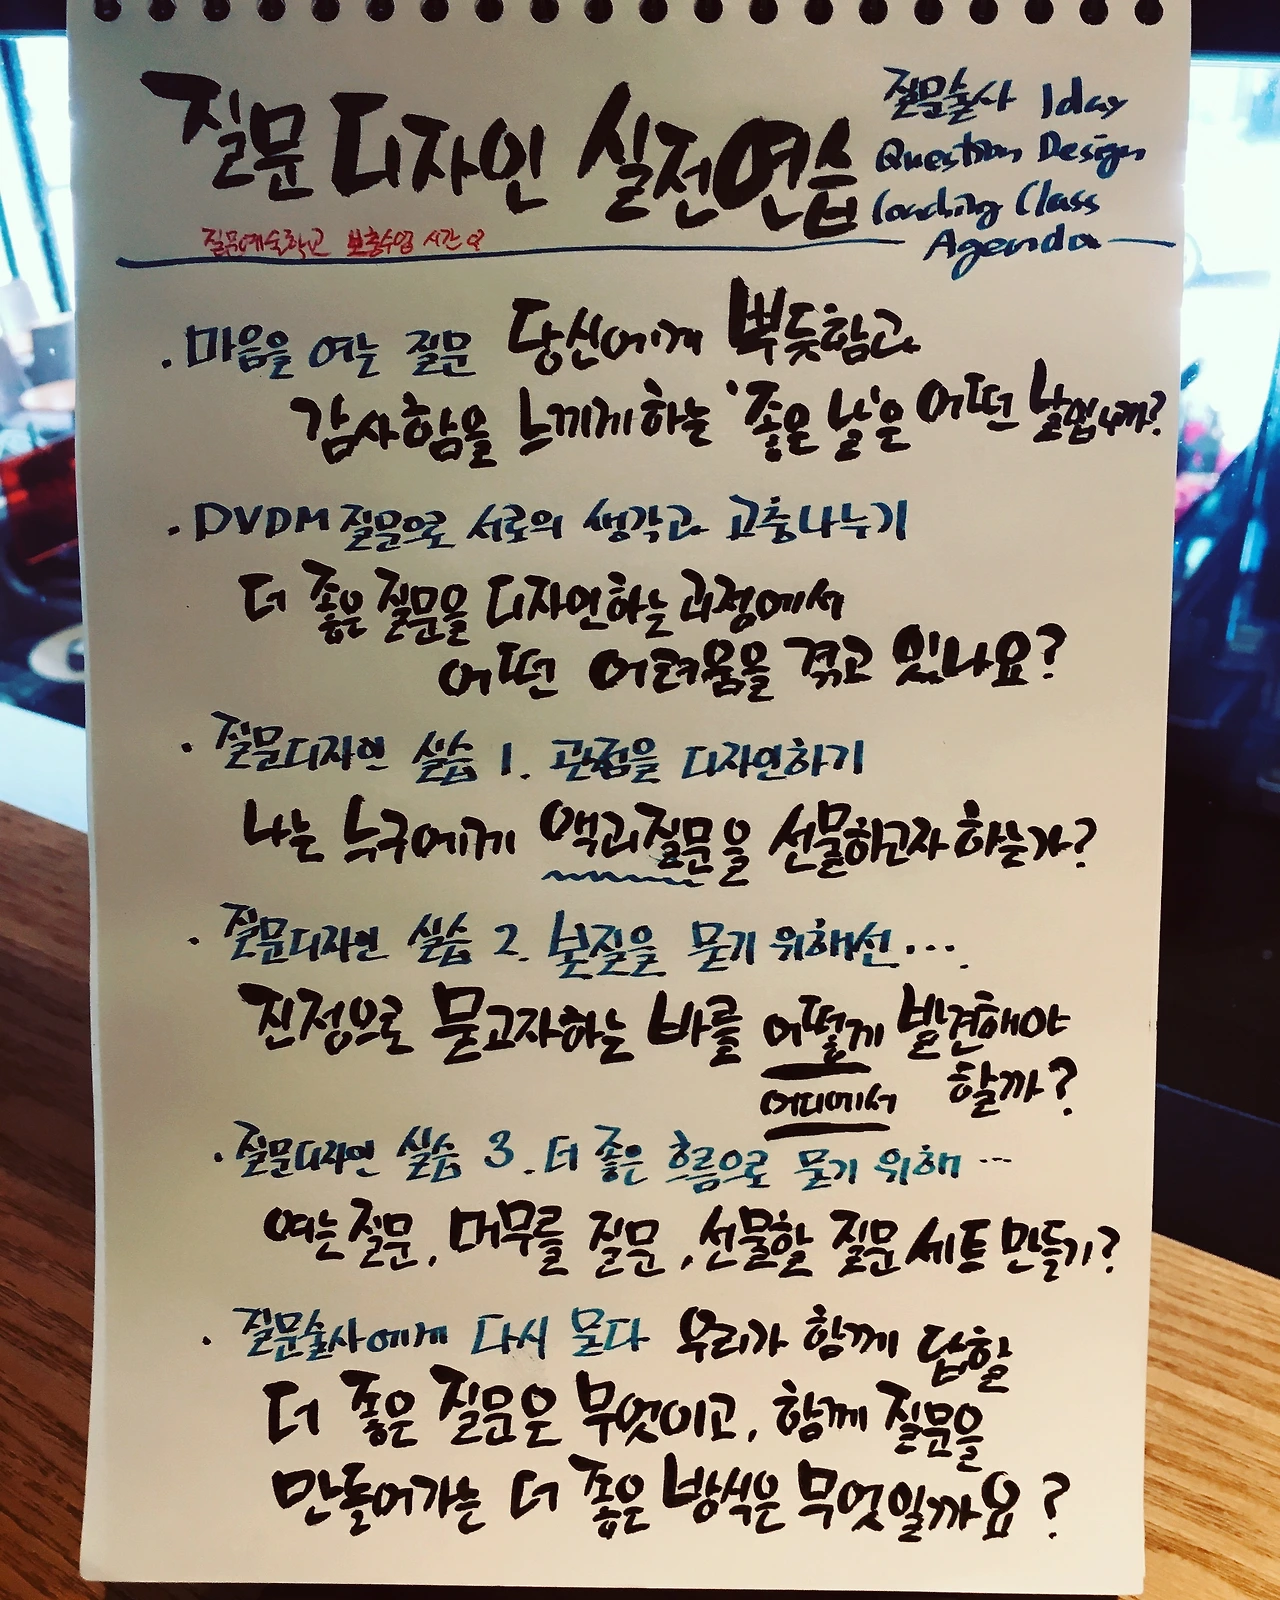 질문디자인 실전연습
질문술사 1day
Question Design
Coaching Class
Agenda
질문예술학교 보충수업 시간
· 마음을 여는 질문 당신에게 뿌듯함과
감사함을 느끼게 하는 '좋은 날'은 어떤 날입니까?
· DVDM 질문으로 서로의 생각과 고충나누기
더 좋은 질문을 디자인하는 과정에서
어떤 어려움을 겪고 있나요?
· 질문디자인 실습 1. 관점을 디자인하기
나는 누구에게 맥괴질문을 선물하고자 하는가?
· 질문디자인 실습 2. 본질을 묻기 위해선...
진정으로 묻고자하는 바를 어떻게 발견해야
어디에서 할까?
· 질문디자인 실습 3. 더 좋은 흐름으로 묻기 위해...
여는 질문, 머무를 질문, 선물할 질문 세트 만들기?
· 질문술사에게 다시 묻다 우리가 함께 답할
더 좋은 질문은 무엇이고, 함께 질문을
만들어가는 더 좋은 방식은 무엇일까요?